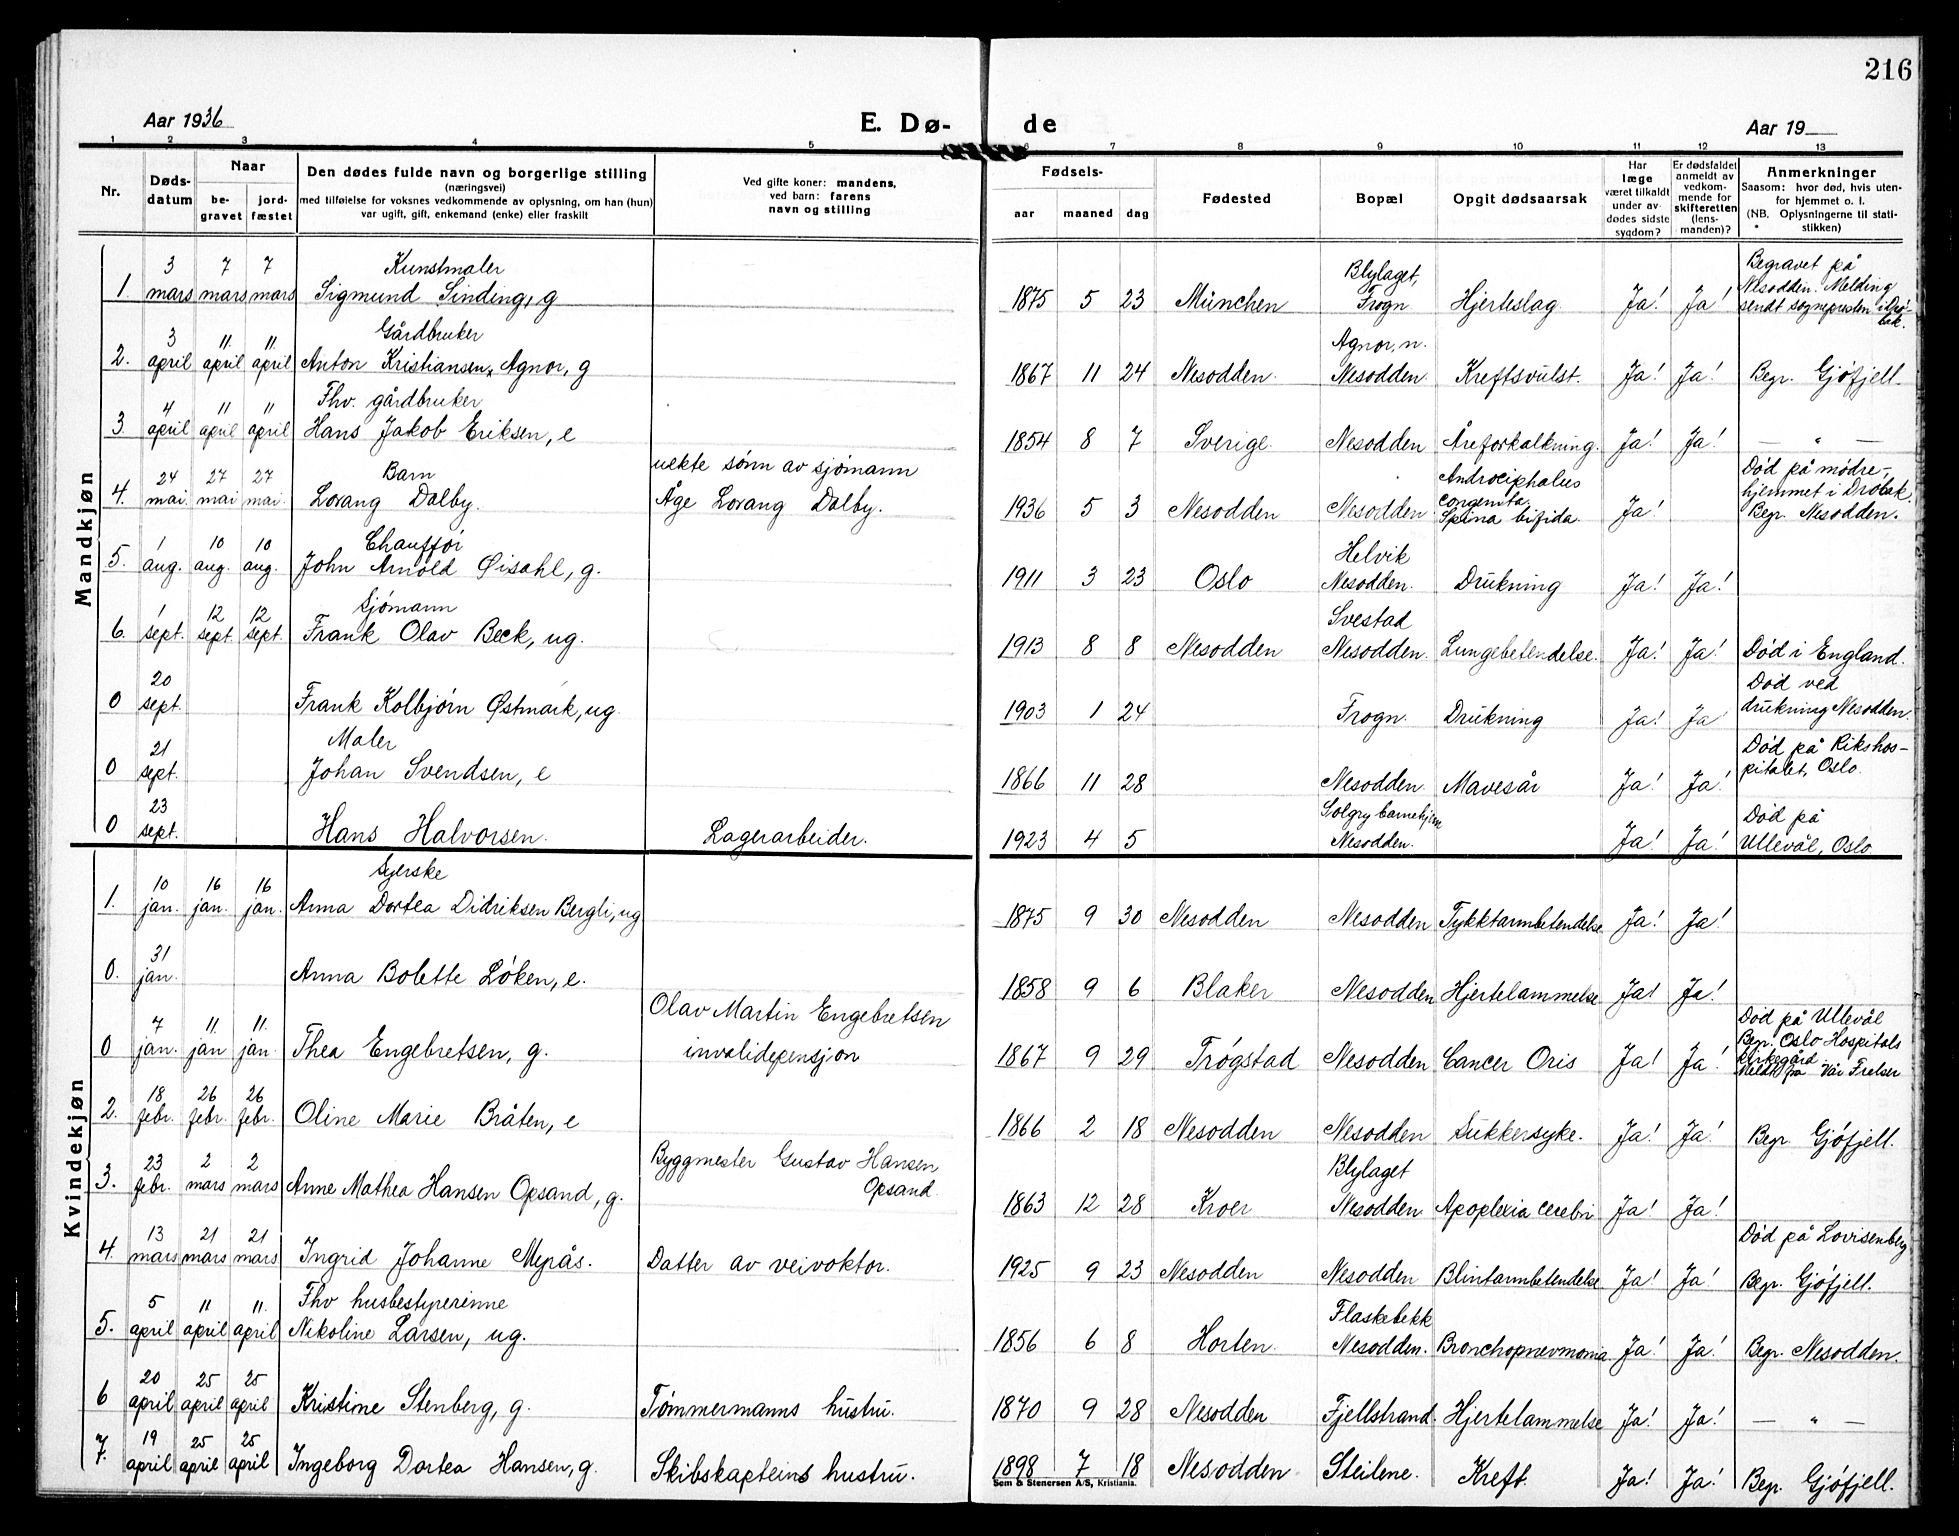 216
Aar 1936
E. Dø-
de
Aar 19
1 2 3 4 5 6 7 8 9 10 11 12 13
Nr.
Døds-
datum
Naar
be-
gravet
jord-
fæstet
Den dødes fulde navn og borgerlige stilling
(næringsvei)
med tilføielse for voksnes vedkommende av oplysning, om han (hun)
var ugift, gift, enkemand (enke) eller fraskilt
Ved gifte koner: mandens,
ved barn: farens
navn og stilling
Fødsels-
aar maaned dag
Fødested
Bopæl
Opgit dødsaarsak
Har
læge
været tilkaldt
under av-
dødes sidste
sygdom?
Er dødsfaldet
anmeldt av
vedkom-
mende for
skifteretten
(lens-
manden)?
Anmerkninger
Saasom: hvor død, hvis uten-
for hjemmet o. l.
(NB. Oplysningerne til stati-
stikken)
Mandkjøn
3 7 7 Kunstmaler Blylaget, Begravet på
1. mars mars mars Sigmund Sinding, g 1875 5 23 München Frogn Hjerteslag. Ja! Ja! Nesodden. Melding
sendt sognepresten i Drø-
bak.
3 11. 11. Gårdbruker Agnor, n.
2. april april april Anton Kristiansen Agnor, g 1867 11 24 Nesodden. Nesodden Kreftsvulst. Ja! Ja! Begr. Gjøfjell.
4 11 11 Fhv. gårdbruker
3. april april april Hans Jakob Eriksen, e 1854 8 7 Sverige. Nesodden Åreforkalkning. Ja! Ja! — " —
24 27 27 Barn uekte sønn av sjømann congenita. Død på mødre-
4. mai. mai mai. Lorang Dalby. Åge Lorang Dalby. 1936 5 3 Nesodden Nesodden Spina bifida. Ja! hjemmet i Drøbak.
Begr. Nesodden.
1 10 10 Chauffør Helvik
5. aug. aug. aug. John Arnold Øisahl, g. 1911 3 23 Oslo Nesodden. Drukning Ja! Ja!
1 12 12 Sjømann Svestad
6. sept. sept. sept. Frank Olav Beck, ug. 1913 8 8 Nesodden Nesodden. Lungebetendelse. Ja! Ja! Død i England.
20 Død ved
0 sept. Frank Kolbjørn Østmark, ug. 1903 1 24 Frogn. Drukning Ja! Ja drukning Nesodden.
21 Maler Død på Rikshos-
0 sept. Johan Svendsen, e 1866 11 28 Nesodden. Mavesår Ja! Ja! pitalet, Oslo.
23 Solgry barnehjem Død på
0 sept. Hans Halvorsen. Lagerarbeider. 1923 4 5 Nesodden. Ja! Ja! Ullevål, Oslo.
Kvindekjøn
10 16 16 Syerske
1. jan. jan. jan. Anna Dortea Didriksen Bergli, ug 1875 9 30 Nesodden Nesodden Tykktarmbetendelse Ja! Ja!
31
0. jan. Anna Bolette Løken, e. 1858 9 6 Blaker Nesodden Hjertelammelse Ja! Ja!
7 11. 11. Olav Martin Engebretsen Død på Ullevål
0 jan. jan jan. Thea Engebretsen, g. invalidepensjon 1867 9 29 Trøgstad Nesodden Cancer Oris Ja! Ja! Begr. Oslo Hospitals
kirkegård
Meldt fra Vår Frelser
18 26 26
2. febr. febr. febr. Oline Marie Bråten, e 1866 2 18 Nesodden Nesodden Sukkersyke. Ja! Ja! Begr. Gjøfjell.
23 2 2 Byggmester Gustav Hansen Blylaget
3. febr. mars mars Anne Mathea Hansen Opsand, g. Opsand. 1863 12 28 Kroer Nesodden Apoplexia cerebri Ja! Ja!
13 21 21 Død på Lovisenberg
4. mars mars mars Ingrid Johanne Myrås. Datter av veivoktor. 1925 9 23 Nesodden Nesodden Blintarmbetendelse Ja! Ja! Begr. Gjøfjell.
5 11 11. Fhv husbestyrerinne Flaskebekk
5. april april april Nikoline Larsen, ug. 1856 6 8 Horten. Nesodden. Bronchopnevmonia Ja! Ja! Begr. Nesodden.
20 25 25
6 april april april Kristine Stenberg, g. Tømmermanns hustru. 1870 9 28 Nesodden Fjellstrand. Hjertelammelse Ja! Ja! — " —
19 25 25
7. april april april Ingeborg Dortea Hansen, g. Skibskapteins hustru. 1898 7 18 Nesodden Steilene. Kreft. Ja! Ja! Begr. Gjøfjell.
Sem & Stenersen A/S, Kristiania.